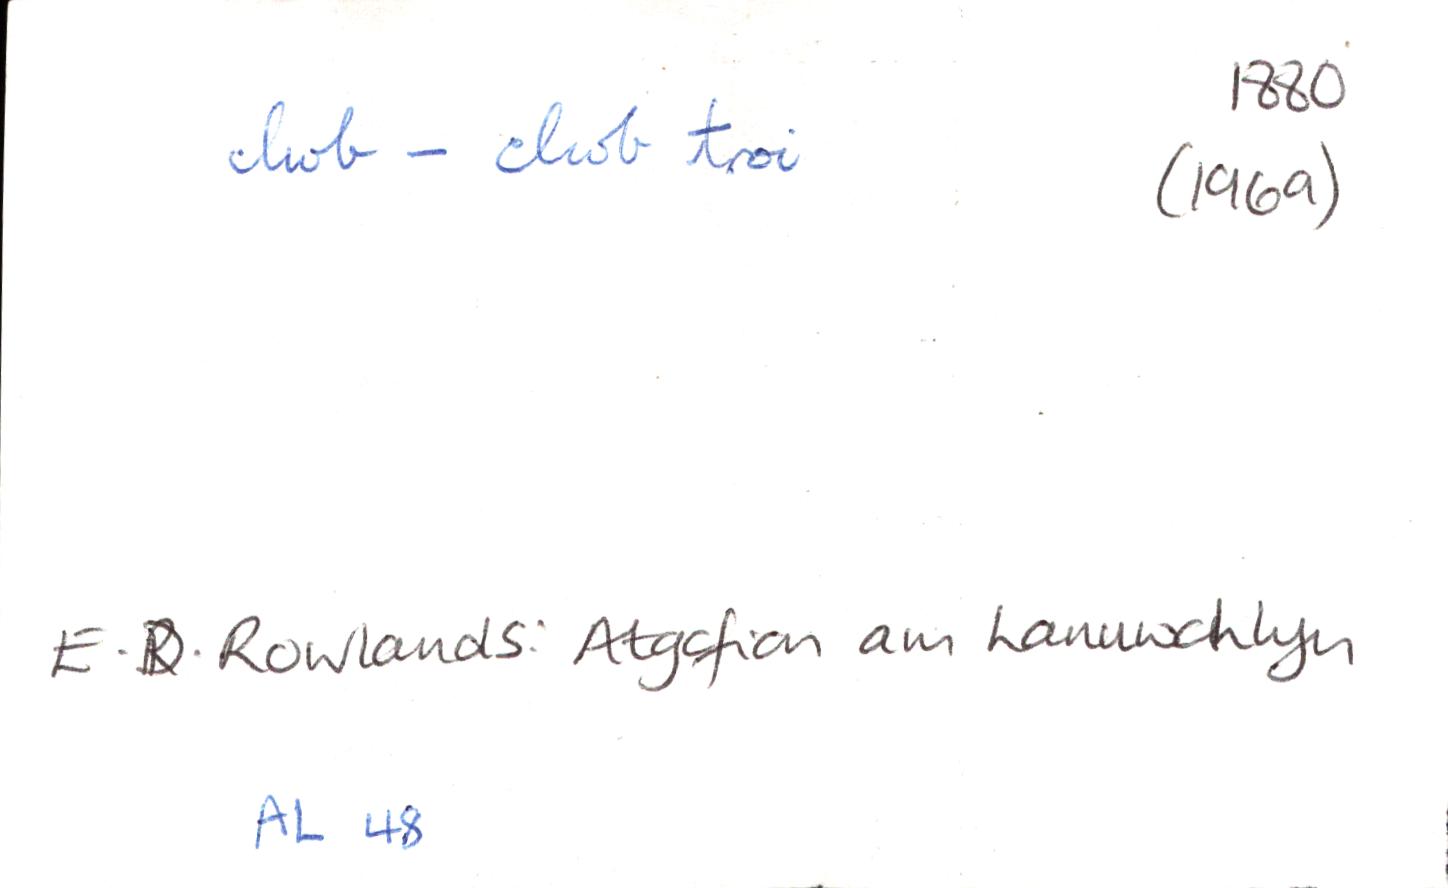 clwb – clwb troi
1880
(1969)
E.D. Rowlands: Atgofion am Lanuwchllyn
AL 48